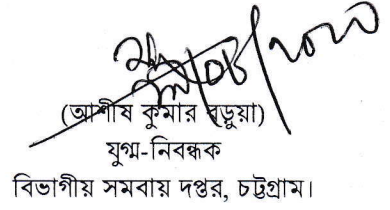 (আশীষ কুমার বড়ুয়া)
যুগ্ম-নিবন্ধক
বিভাগীয় সমবায় দপ্তর, চট্টগ্রাম।